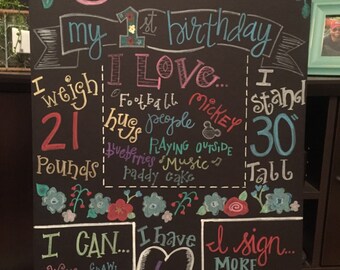 my 1st birthday
I LOVE...
Football
MICKEY
hugs
people
Blueberries
PLAYING OUTSIDE
Music
PADDY CAKE
I weigh
21
POUNDS
I STAND
30"
TALL
I CAN...
I have
I sign...
MORE
CRAWL